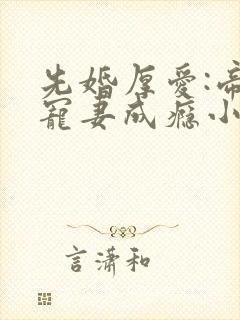 先婚厚爱:帝
寵妻成瘾小
言潇和